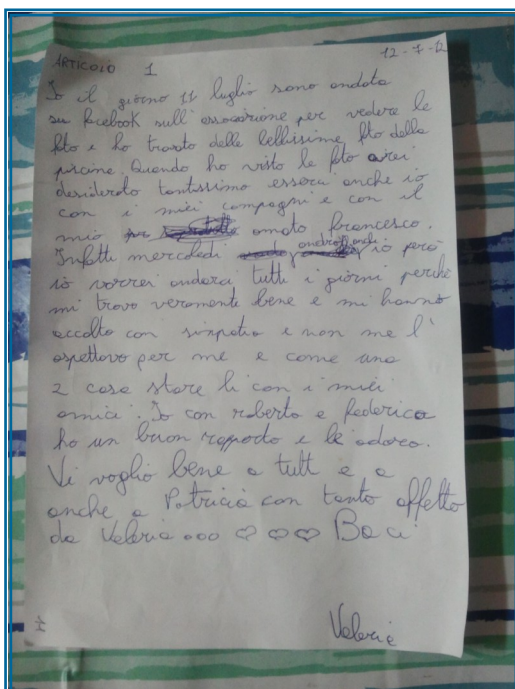 12-7-12
ARTICOLO 1
Io il giorno 11 luglio sono andata
su facebook sull'associazione per vedere le
foto e ho trovato delle bellissime foto della
piscine. Quando ho visto le foto avrei
desiderato tantissimo essere anche io
con i miei compagni e con il
mio amato francesco.
Infatti mercoledì andrò anche io però
io vorrei andarci tutti i giorni perché
mi trovo veramente bene e mi hanno
accolto con simpatia e non me l'
aspettavo per me e come una
2 casa stare li con i miei
amici. Io con roberta e federica
ho un buon rapporto e le adoro.
Vi voglio bene a tutt e a
anche a Patricia con tanto affetto
da Valeria ooo ♡ ♡ ♡ Baci!
Valeria